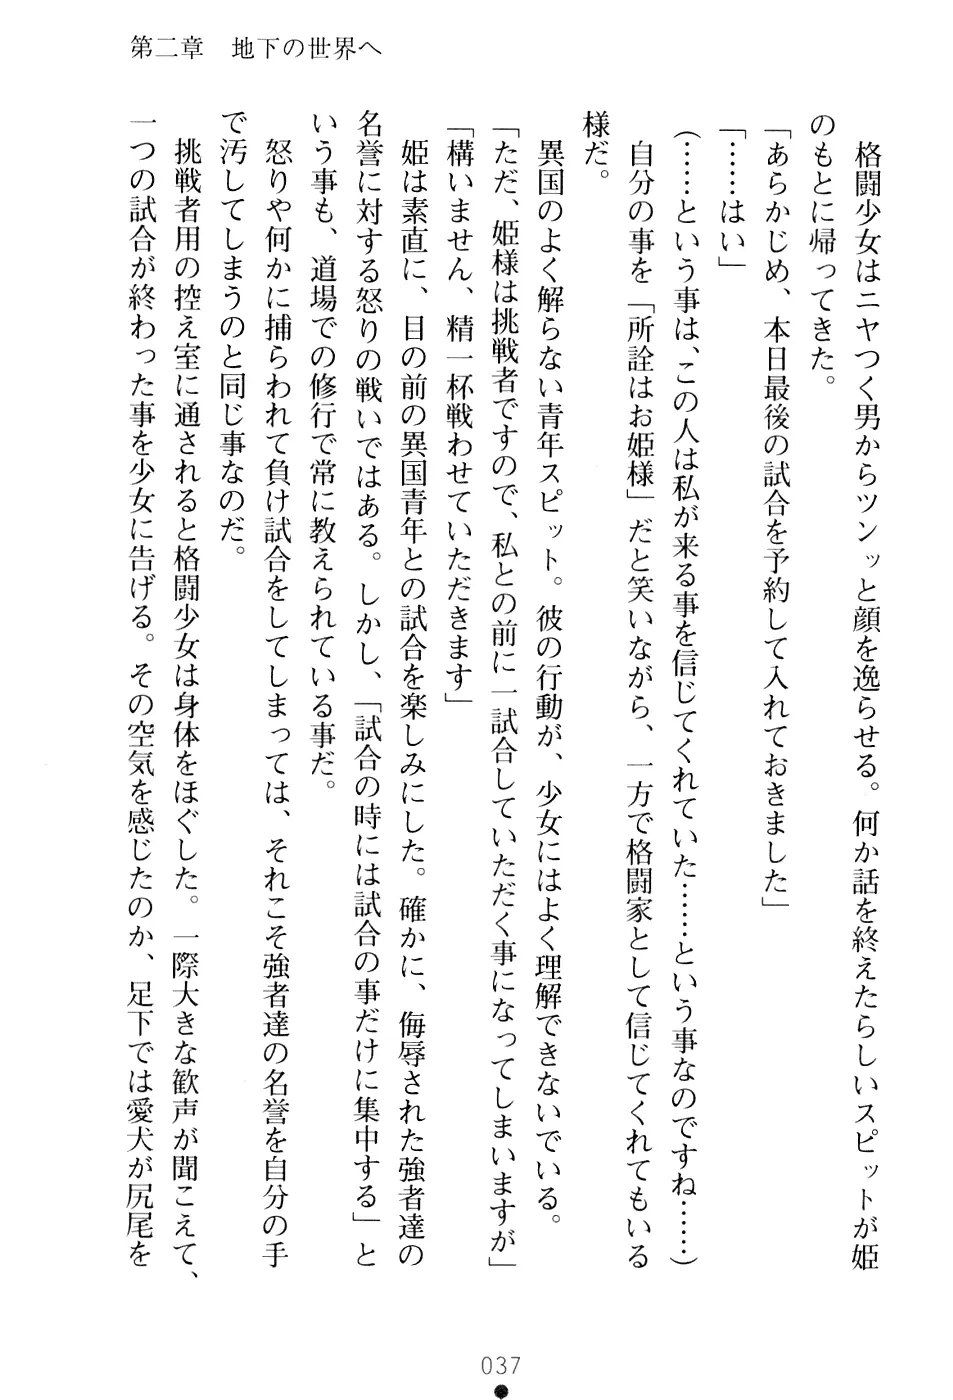 第二章　地下の世界へ
　格闘少女はニヤつく男からツンッと顔を逸らせる。何か話を終えたらしいスピットが姫
のもとに帰ってきた。
「あらかじめ、本日最後の試合を予約して入れておきました」
「……はい」
(……という事は、この人は私が来る事を信じてくれていた……という事なのですね……)
　自分の事を「所詮はお姫様」だと笑いながら、一方で格闘家として信じてくれてもいる
様だ。
　異国のよく解らない青年スピット。彼の行動が、少女にはよく理解できないでいる。
「ただ、姫様は挑戦者ですので、私との前に一試合していただく事になってしまいますが」
「構いません、精一杯戦わせていただきます」
　姫は素直に、目の前の異国青年との試合を楽しみにした。確かに、侮辱された強者達の
名誉に対する怒りの戦いではある。しかし、「試合の時には試合の事だけに集中する」と
いう事も、道場での修行で常に教えられている事だ。
　怒りや何かに捕らわれて負け試合をしてしまっては、それこそ強者達の名誉を自分の手
で汚してしまうのと同じ事なのだ。
　挑戦者用の控え室に通されると格闘少女は身体をほぐした。一際大きな歓声が聞こえて、
一つの試合が終わった事を少女に告げる。その空気を感じたのか、足下では愛犬が尻尾を
037